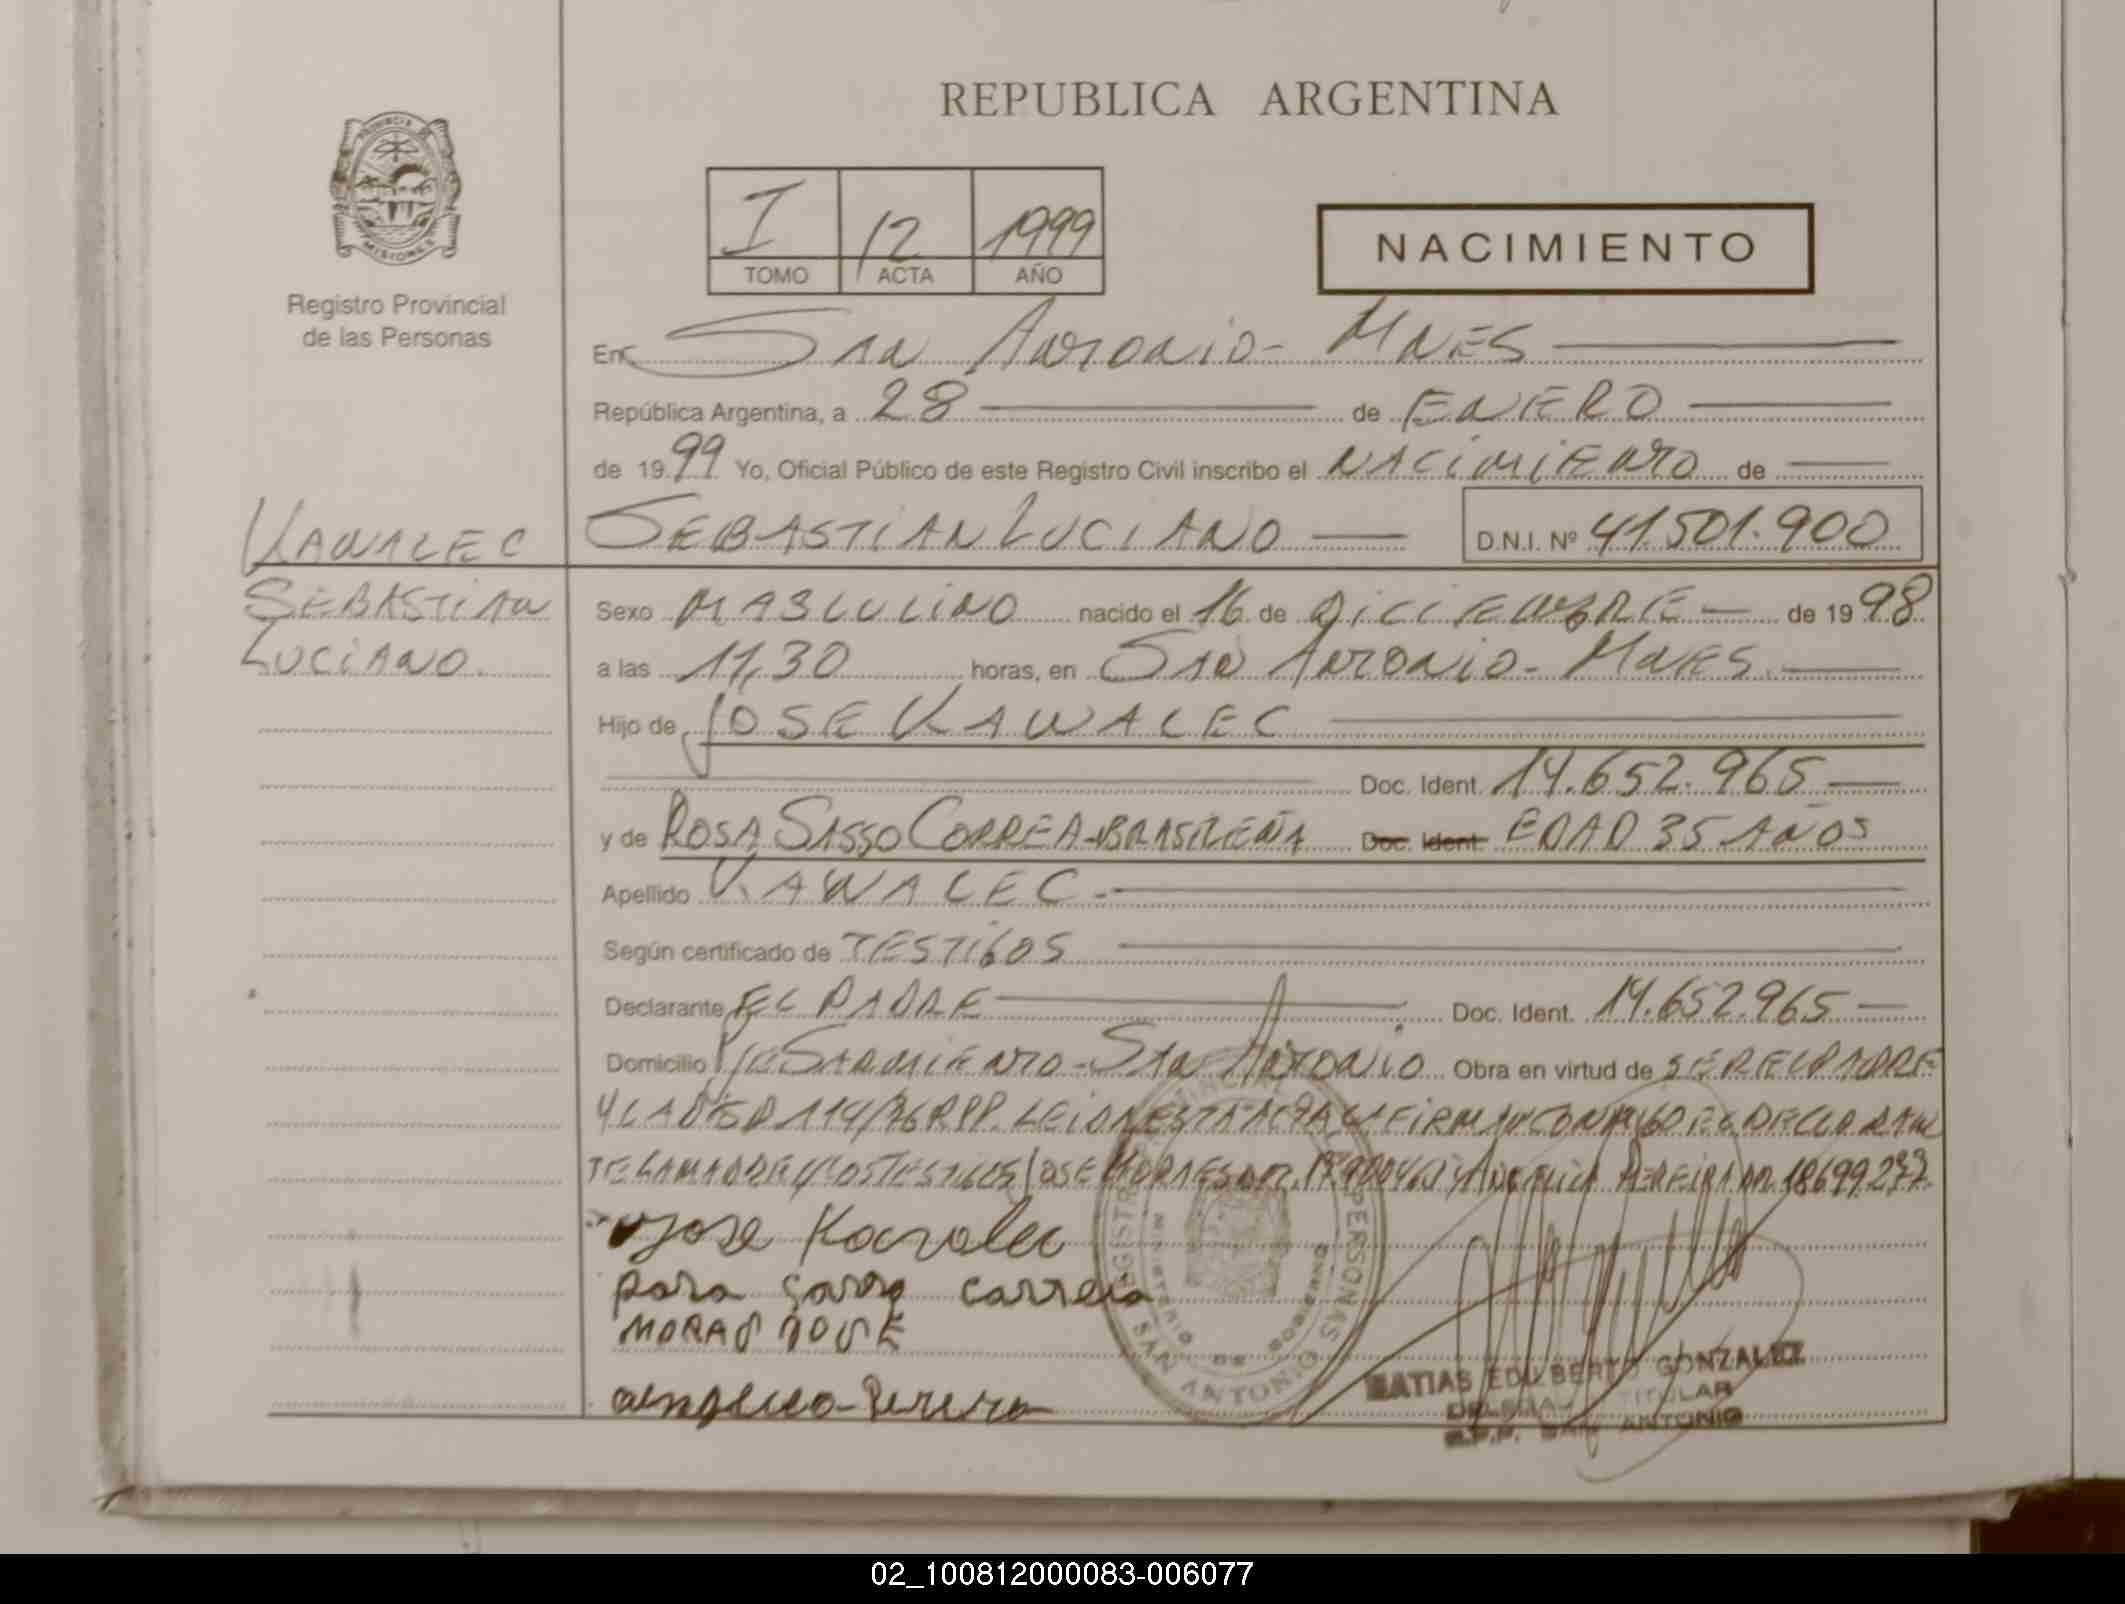 REPUBLICA ARGENTINA
PROVINCIA DE MISIONES
Registro Provincial
de las Personas
I 12 1999
TOMO ACTA AÑO
NACIMIENTO
En San Antonio - Mnes
República Argentina, a 28 de ENERO
de 1999 Yo, Oficial Público de este Registro Civil inscribo el NACIMIENTO de
KAWALEC
SEBASTIAN
LUCIANO
SEBASTIAN LUCIANO D.N.I. Nº 41.501.900
Sexo MASCULINO nacido el 16 de DICIEMBRE de 1998
a las 11,30 horas, en San Antonio - Mnes.
Hijo de JOSE KAWALEC
Doc. Ident. 14.652.965
y de ROSA SASSO CORREA - BRASILEÑA Doc. Ident. EDAD 35 AÑOS
Apellido KAWALEC -
Según certificado de TESTIGOS
Declarante EL PADRE Doc. Ident. 14.652.965
Domicilio Pje Sarmiento - San Antonio Obra en virtud de SER EL PADRE
Y LA DED 114/76 RPP. LEIDA ESTA ACTA LA FIRMAN CONMIGO EL DECLARAN
TE LA MADRE Y LOS TESTIGOS JOSE MORAES DNI. Y ANGELICA PEREIRA DNI. 18699.277.
Jose Kawalec
correia
MORAS JOSE
angelica Pereira
REGISTRO PROVINCIAL DE LAS PERSONAS
MINISTERIO DE GOBIERNO
SAN ANTONIO
MATIAS EDILBERTO GONZALEZ
DELEGADO TITULAR
R.P.P. SAN ANTONIO
02_100812000083-006077